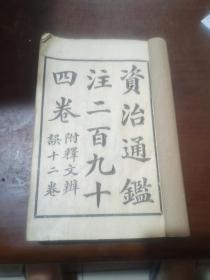 資治通鑑
注二百九十
四卷附釋文辨
誤十二卷